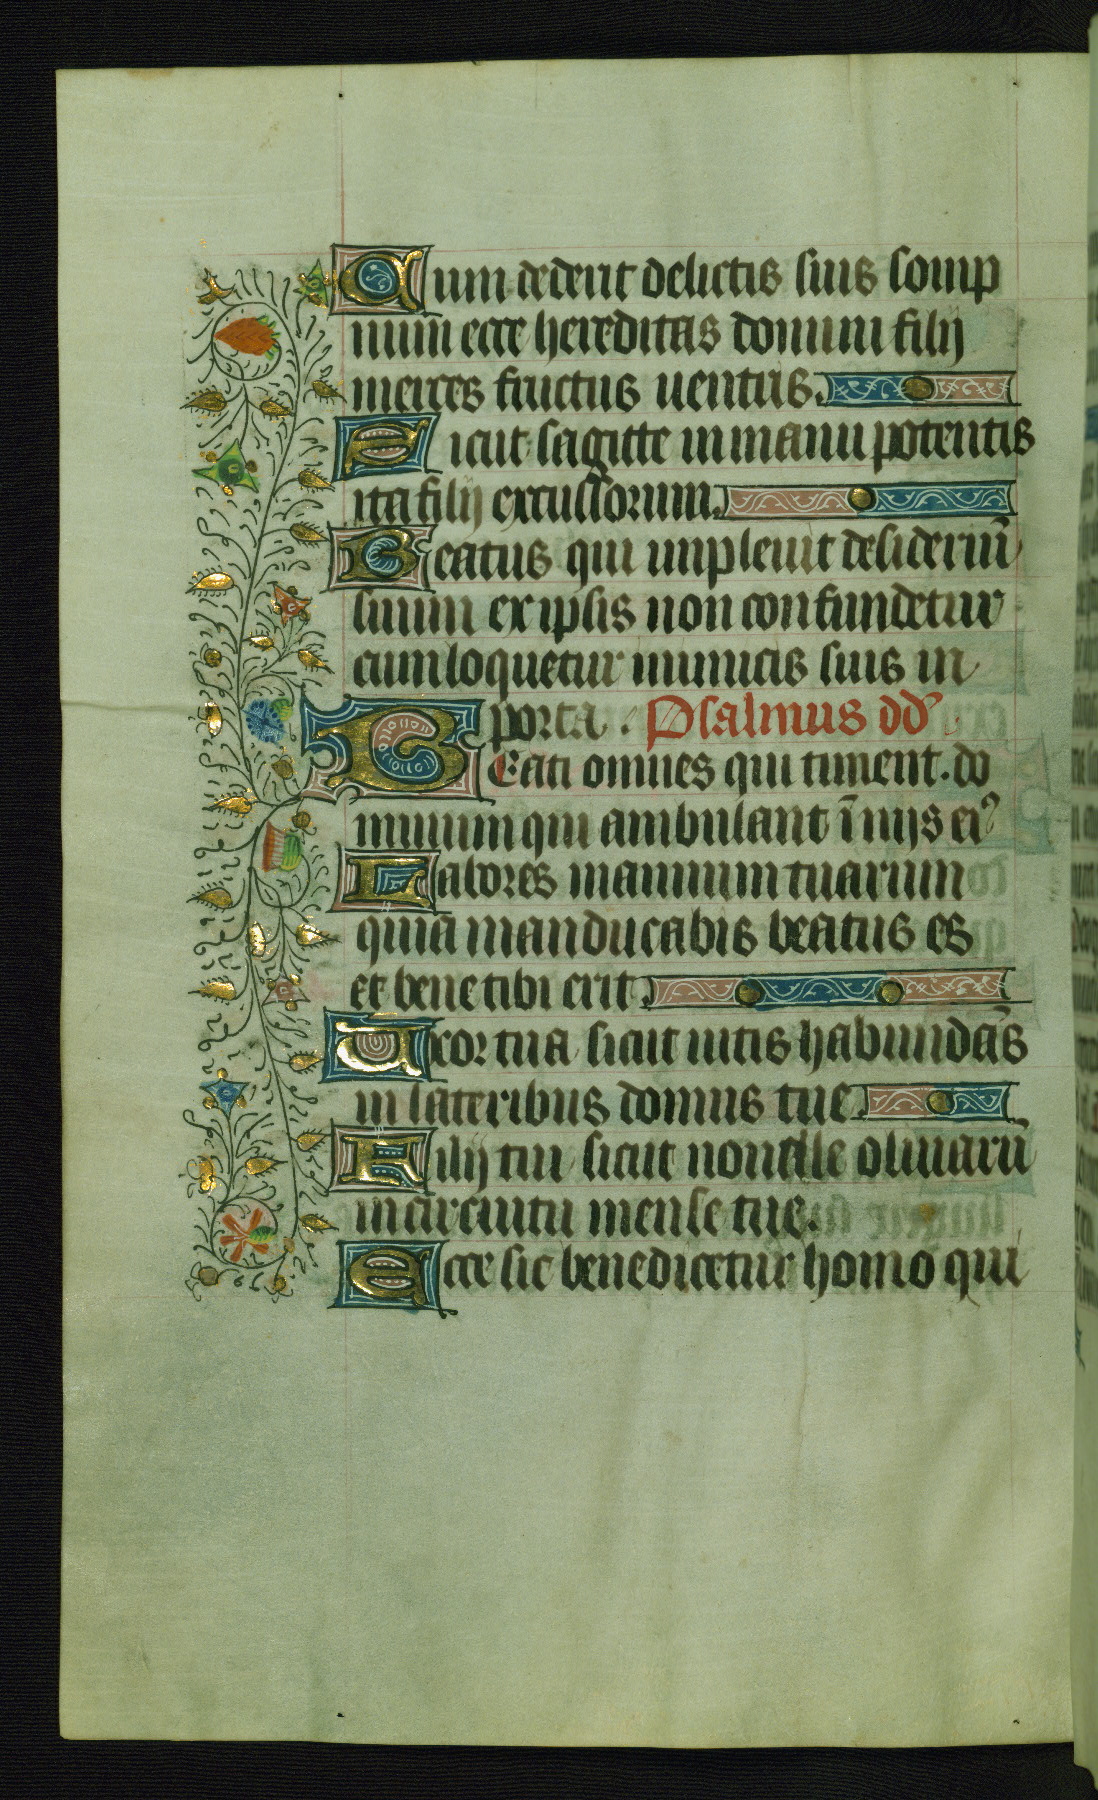 Cum dederit delictis suis somp
num ecce hereditas domini filij
merces fructus uentris.
Sicut sagitte in manu potentis
ita filij excussorum.
Beatus qui impleuit desideriū
suum ex ipsis non confundetur
cum loquetur inimicis suis in
porta. Psalmus dd̄.
BEati omnes qui timent. do
minum qui ambulant ī uijs eiꝰ
Labores manuum tuarum
quia manducabis beatus es
et bene tibi erit.
Uxor tua sicut uitis habundās
in lateribus domus tue.
Filij tui sicut nouelle oliuarū
in circuitu mense tue.
Ecce sic benedicetur homo qui